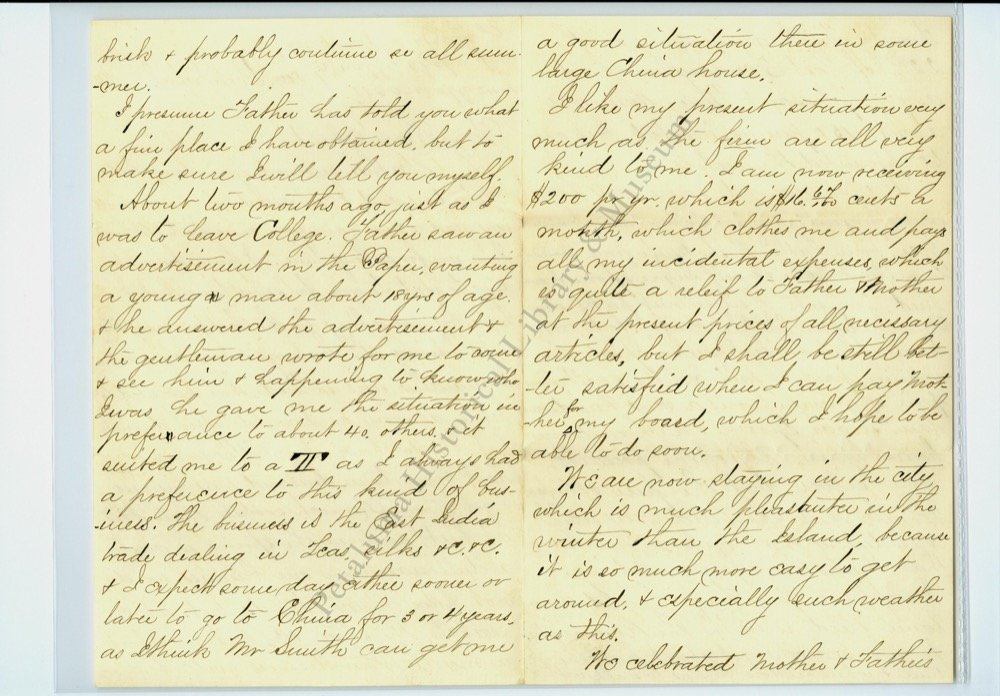 brisk & probably continue so all sum-
-mer.
I presume Father has told you what
a fine place I have obtained, but to
make sure I will tell you myself.
About two months ago, just as I
was to leave College. Father saw an
advertisement in the Paper, wanting
a young man about 18 yrs of age.
& he answered the advertisement &
the gentleman wrote for me to come
& see him & happening to know who
I was he gave me the situation in
preferance to about 40. others. & it
suited me to a T as I always had
a preference to this kind of bus-
-iness. The business is the East India
trade dealing in Teas, silks &c. &c.
& I expect some day either sooner or
later to go to China for 3 or 4 years.
as I think Mr Smith can get me
a good situation there in some
large China house.
I like my present situation very
much as the firm are all very
kind to me. I am now receiving
$200 pr yr. which is $16. 67/100 cents a
month, which clothes me and pays
all my incidental expenses, which
is quite a releif to Father & Mother
at the present prices of all necessary
articles, but I shall be still bet-
ter satisfied when I can pay Mot-
-her for my board, which I hope to be
able to do soon.
We are now staying in the city
which is much pleasanter in the
winter than the Island, because
it is so much more easy to get
around, & especially such weather
as this.
We celebrated Mother & Father's
Petaluma Historical Library & Museum